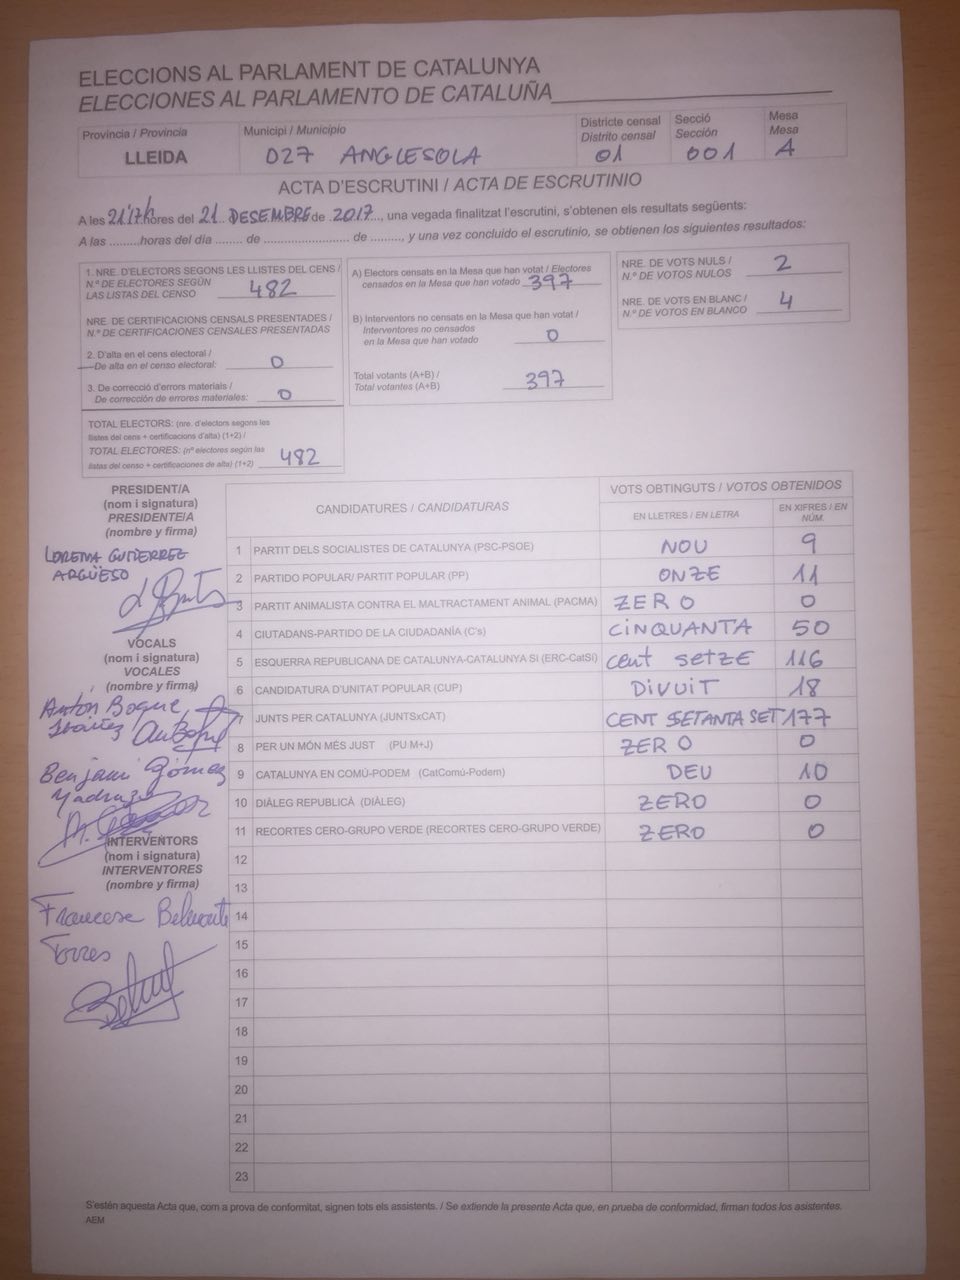 ELECCIONS AL PARLAMENT DE CATALUNYA
ELECCIONES AL PARLAMENTO DE CATALUÑA
Provincia / Provincia
LLEIDA
Municipi / Municipio
027 ANGLESOLA
Districte censal
Distrito censal
01
Secció
Sección
001
Mesa
Mesa
A
ACTA D'ESCRUTINI / ACTA DE ESCRUTINIO
A les 21'17h hores del 21 DESEMBRE de 2017, una vegada finalitzat l'escrutini, s'obtenen els resultats següents:
A las ........horas del día ....... de ....................... de ........., y una vez concluido el escrutinio, se obtienen los siguientes resultados:
1. NRE. D'ELECTORS SEGONS LES LLISTES DEL CENS /
N.º DE ELECTORES SEGÚN
LAS LISTAS DEL CENSO 482
NRE. DE CERTIFICACIONS CENSALS PRESENTADES /
N.º DE CERTIFICACIONES CENSALES PRESENTADAS
2. D'alta en el cens electoral /
De alta en el censo electoral: 0
3. De correcció d'errors materials /
De corrección de errores materiales: 0
TOTAL ELECTORS: (nre. d'electors segons les
llistes del cens + certificacions d'alta) (1+2) /
TOTAL ELECTORES: (nº electores según las
listas del censo + certificaciones de alta) (1+2) 482
A) Electors censats en la Mesa que han votat / Electores
censados en la Mesa que han votado 397
B) Interventors no censats en la Mesa que han votat /
Interventores no censados
en la Mesa que han votado 0
Total votants (A+B) /
Total votantes (A+B) 397
NRE. DE VOTS NULS /
N.º DE VOTOS NULOS 2
NRE. DE VOTS EN BLANC /
N.º DE VOTOS EN BLANCO 4
PRESIDENT/A
(nom i signatura)
PRESIDENTE/A
(nombre y firma)
LORENA GUTIERREZ
ARGÜESO
VOCALS
(nom i signatura)
VOCALES
(nombre y firma)
Anton Boque
Ibañez
Benjami Gómez
Madrazo
INTERVENTORS
(nom i signatura)
INTERVENTORES
(nombre y firma)
Francesc Belmonte
Torres
CANDIDATURES / CANDIDATURAS
VOTS OBTINGUTS / VOTOS OBTENIDOS
EN LLETRES / EN LETRA
EN XIFRES / EN NÚM.
1 PARTIT DELS SOCIALISTES DE CATALUNYA (PSC-PSOE) NOU 9
2 PARTIDO POPULAR/ PARTIT POPULAR (PP) ONZE 11
3 PARTIT ANIMALISTA CONTRA EL MALTRACTAMENT ANIMAL (PACMA) ZERO 0
4 CIUTADANS-PARTIDO DE LA CIUDADANÍA (C's) CINQUANTA 50
5 ESQUERRA REPUBLICANA DE CATALUNYA-CATALUNYA SÍ (ERC-CatSí) cent SETZE 116
6 CANDIDATURA D'UNITAT POPULAR (CUP) DIVUIT 18
7 JUNTS PER CATALUNYA (JUNTSxCAT) CENT SETANTA SET 177
8 PER UN MÓN MÉS JUST (PU M+J) ZERO 0
9 CATALUNYA EN COMÚ-PODEM (CatComú-Podem) DEU 10
10 DIÀLEG REPUBLICÀ (DIÀLEG) ZERO 0
11 RECORTES CERO-GRUPO VERDE (RECORTES CERO-GRUPO VERDE) ZERO 0
12
13
14
15
16
17
18
19
20
21
22
23
S'estén aquesta Acta que, com a prova de conformitat, signen tots els assistents. / Se extiende la presente Acta que, en prueba de conformidad, firman todos los asistentes.
AEM